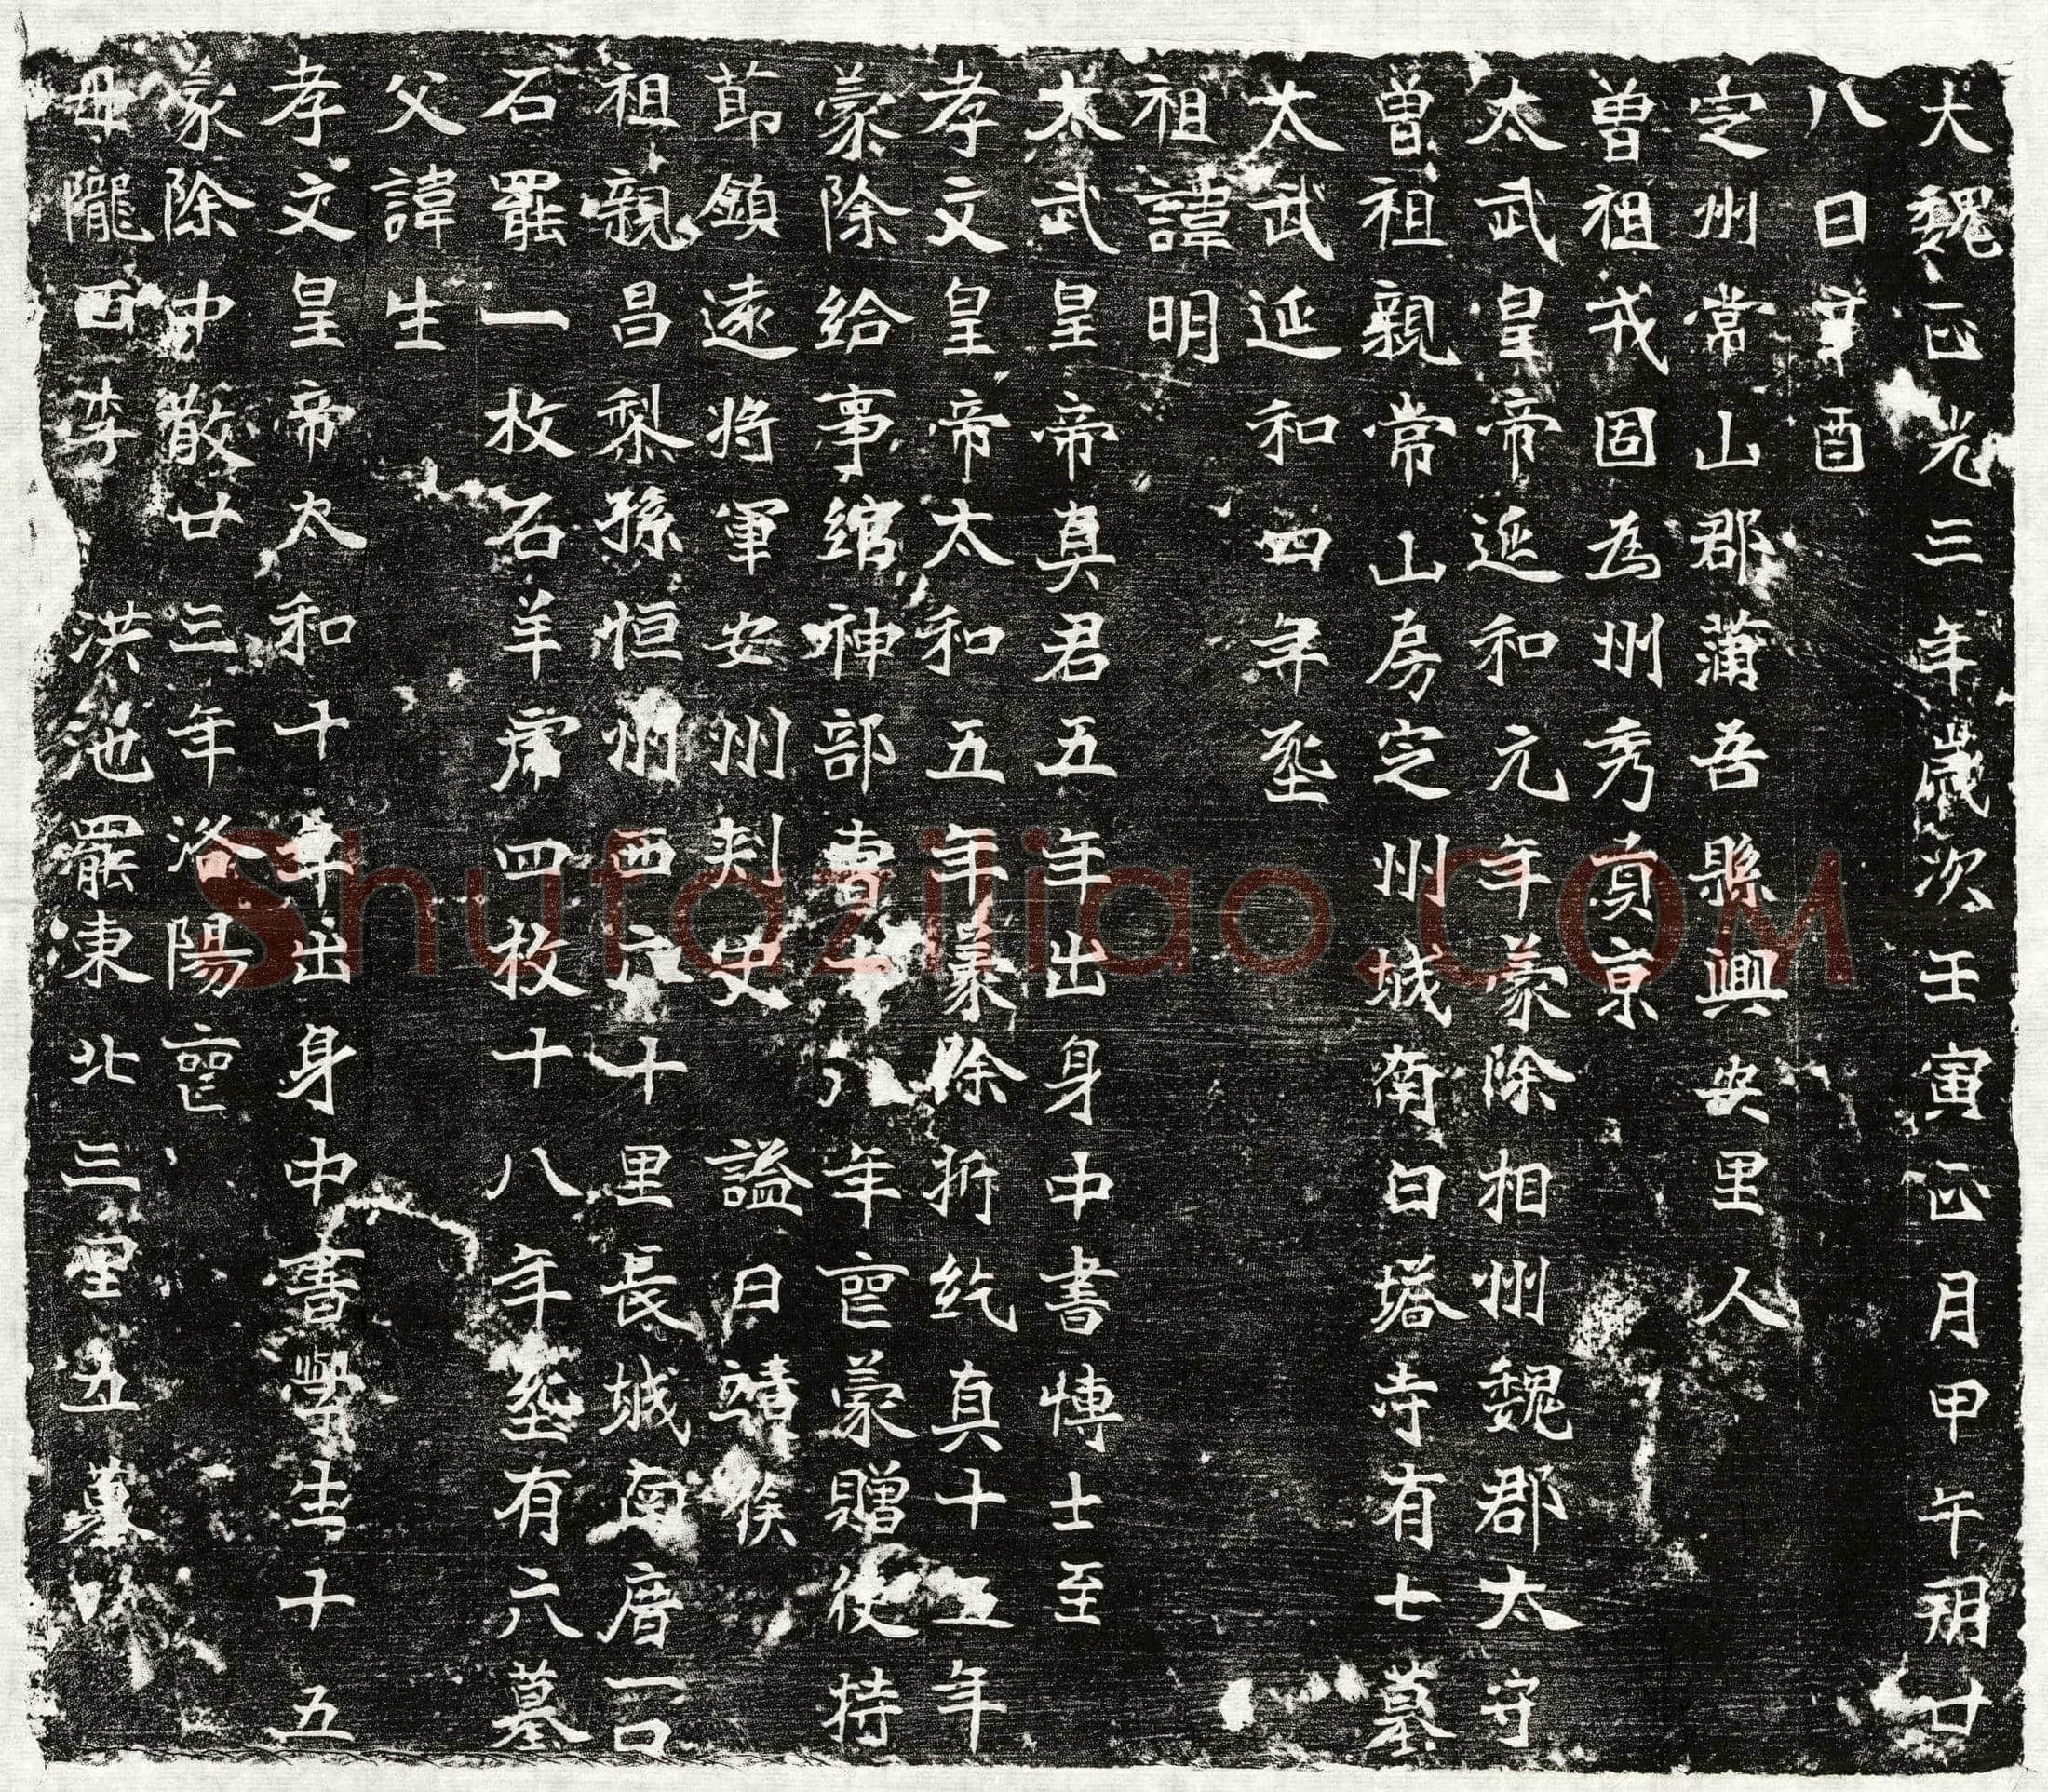 大魏正光三年歲次壬寅正月甲午朔廿
八日辛酉
定州常山郡蒲吾縣興安里人
曾祖戎固為州秀貢京
太武皇帝延和元年蒙除相州魏郡太守
曾祖親常山房定州城南白塔寺有七墓
太武延和四年塟
祖諱明
太武皇帝真君五年出身中書博士至
孝文皇帝太和五年蒙除折紇真十五年
蒙除給事綰神部曹十八年亡蒙贈使持
節鎮遠將軍安州刺史 謚曰靖侯
祖親昌梨孫恒州西六十里長城南唐一口
石羆一枚石羊席四枚十八年塟有六墓
父諱生
孝文皇帝太和十年出身中書學生十五
蒙除中散廿三年洛陽亡
母隴西李 洪池羆東北三里五墓
Shufaziliao.COM